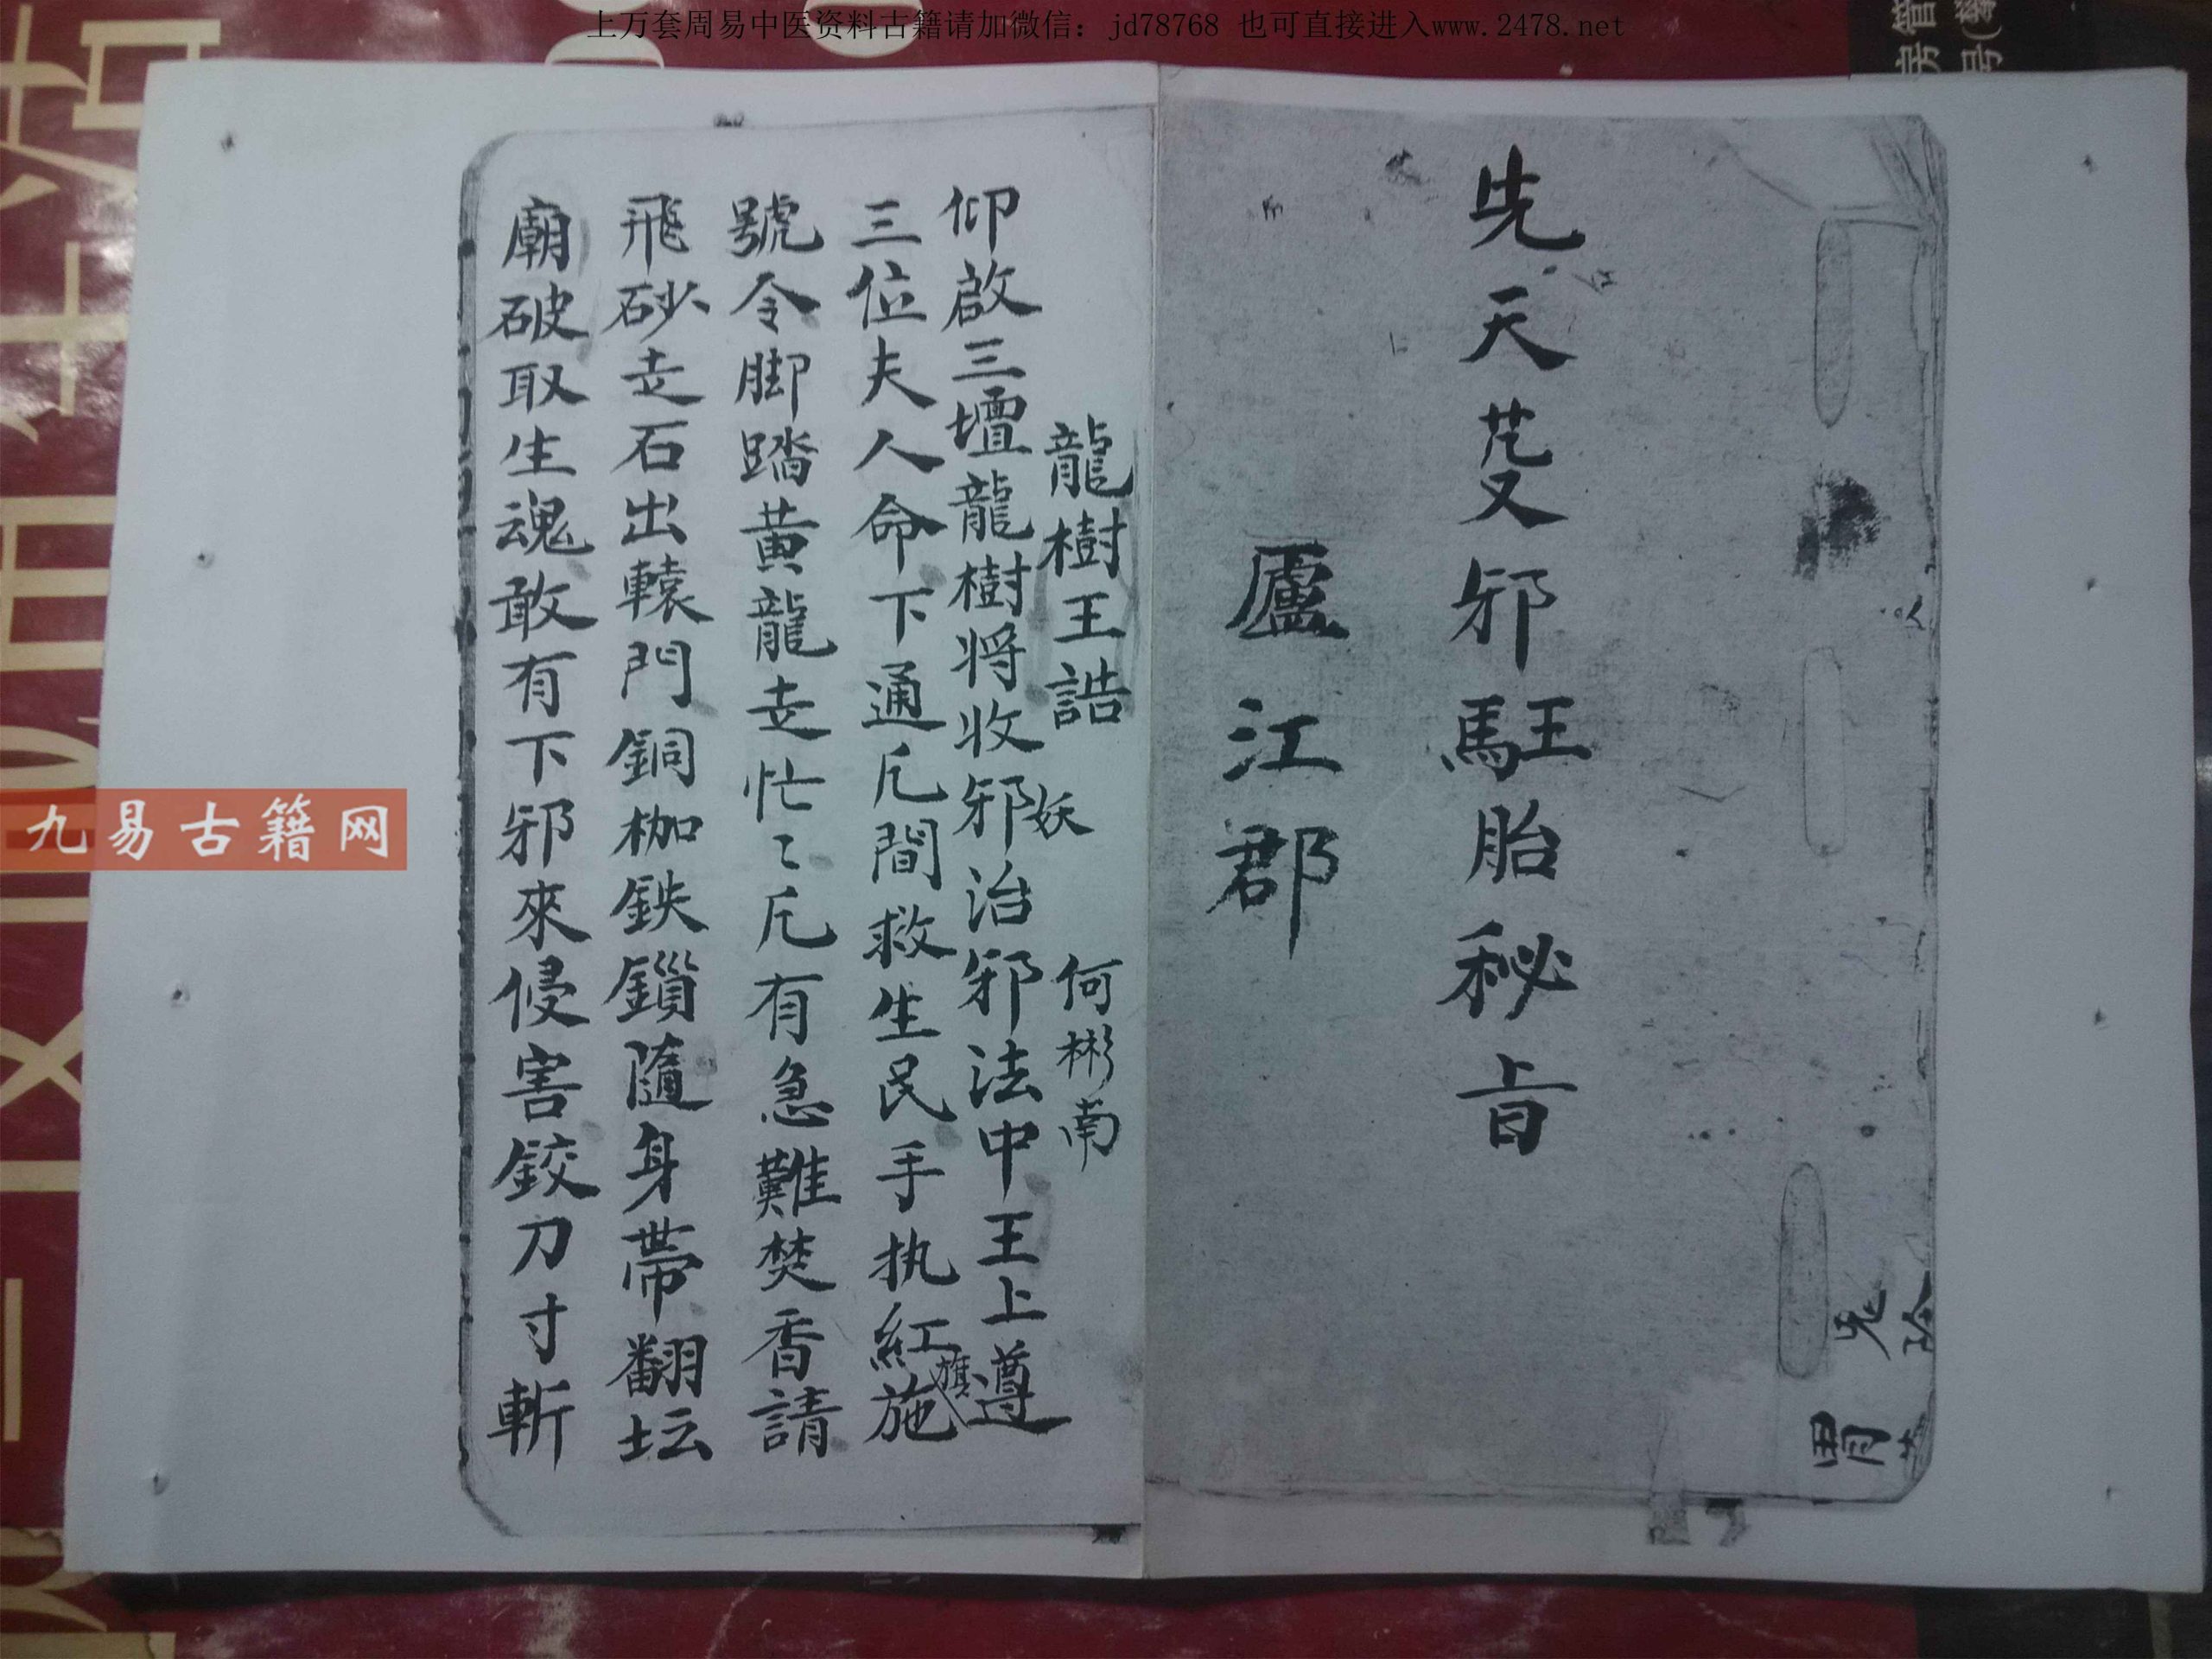 上万套周易中医资料古籍请加微信: jd78768 也可直接进入www.2478.net
先天芟邪駐胎秘旨
廬江郡
龍樹王誥 何彬南
仰啟三壇龍樹將收邪妖治邪法中王上遵
三位夫人命下通凢間救生民手执紅施旗
號令脚踏黄龍走忙〻凢有急難焚香請
飛砂走石出轅門銅枷鉄鎖隨身帶翻坛
廟破取生魂敢有下邪來侵害鉸刀寸斬
九易古籍网